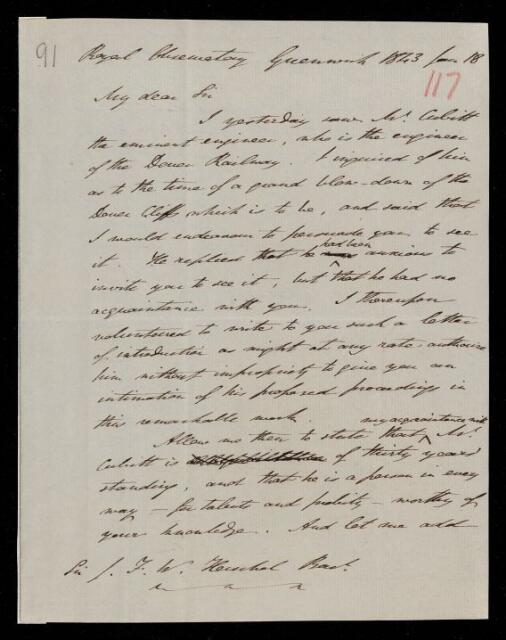 91
Royal Observatory Greenwich 1843 Jan 18
117
My dear Sir
I yesterday saw Mr. Cubitt
the eminent engineer, who is the engineer
of the Dover Railway. I inquired of him
as to the time of a grand blow-down of the
Dover Cliffs which is to be, and said that
I would endeavour to persuade you to see
it. He replied that he had been anxious to
invite you to see it, but that he had no
acquaintance with you. I thereupon
volunteered to write to you such a letter
of introduction as might at any rate authorize
him without impropriety to give you an
intimation of his proposed proceedings in
this remarkable work.
Allow me then to state that my acquaintance with Mr.
Cubitt is of thirty years'
standing, and that he is a person in every
way - for talents and probity - worthy of
your knowledge. And let me add
Sir J. F. W. Herschel Bart.